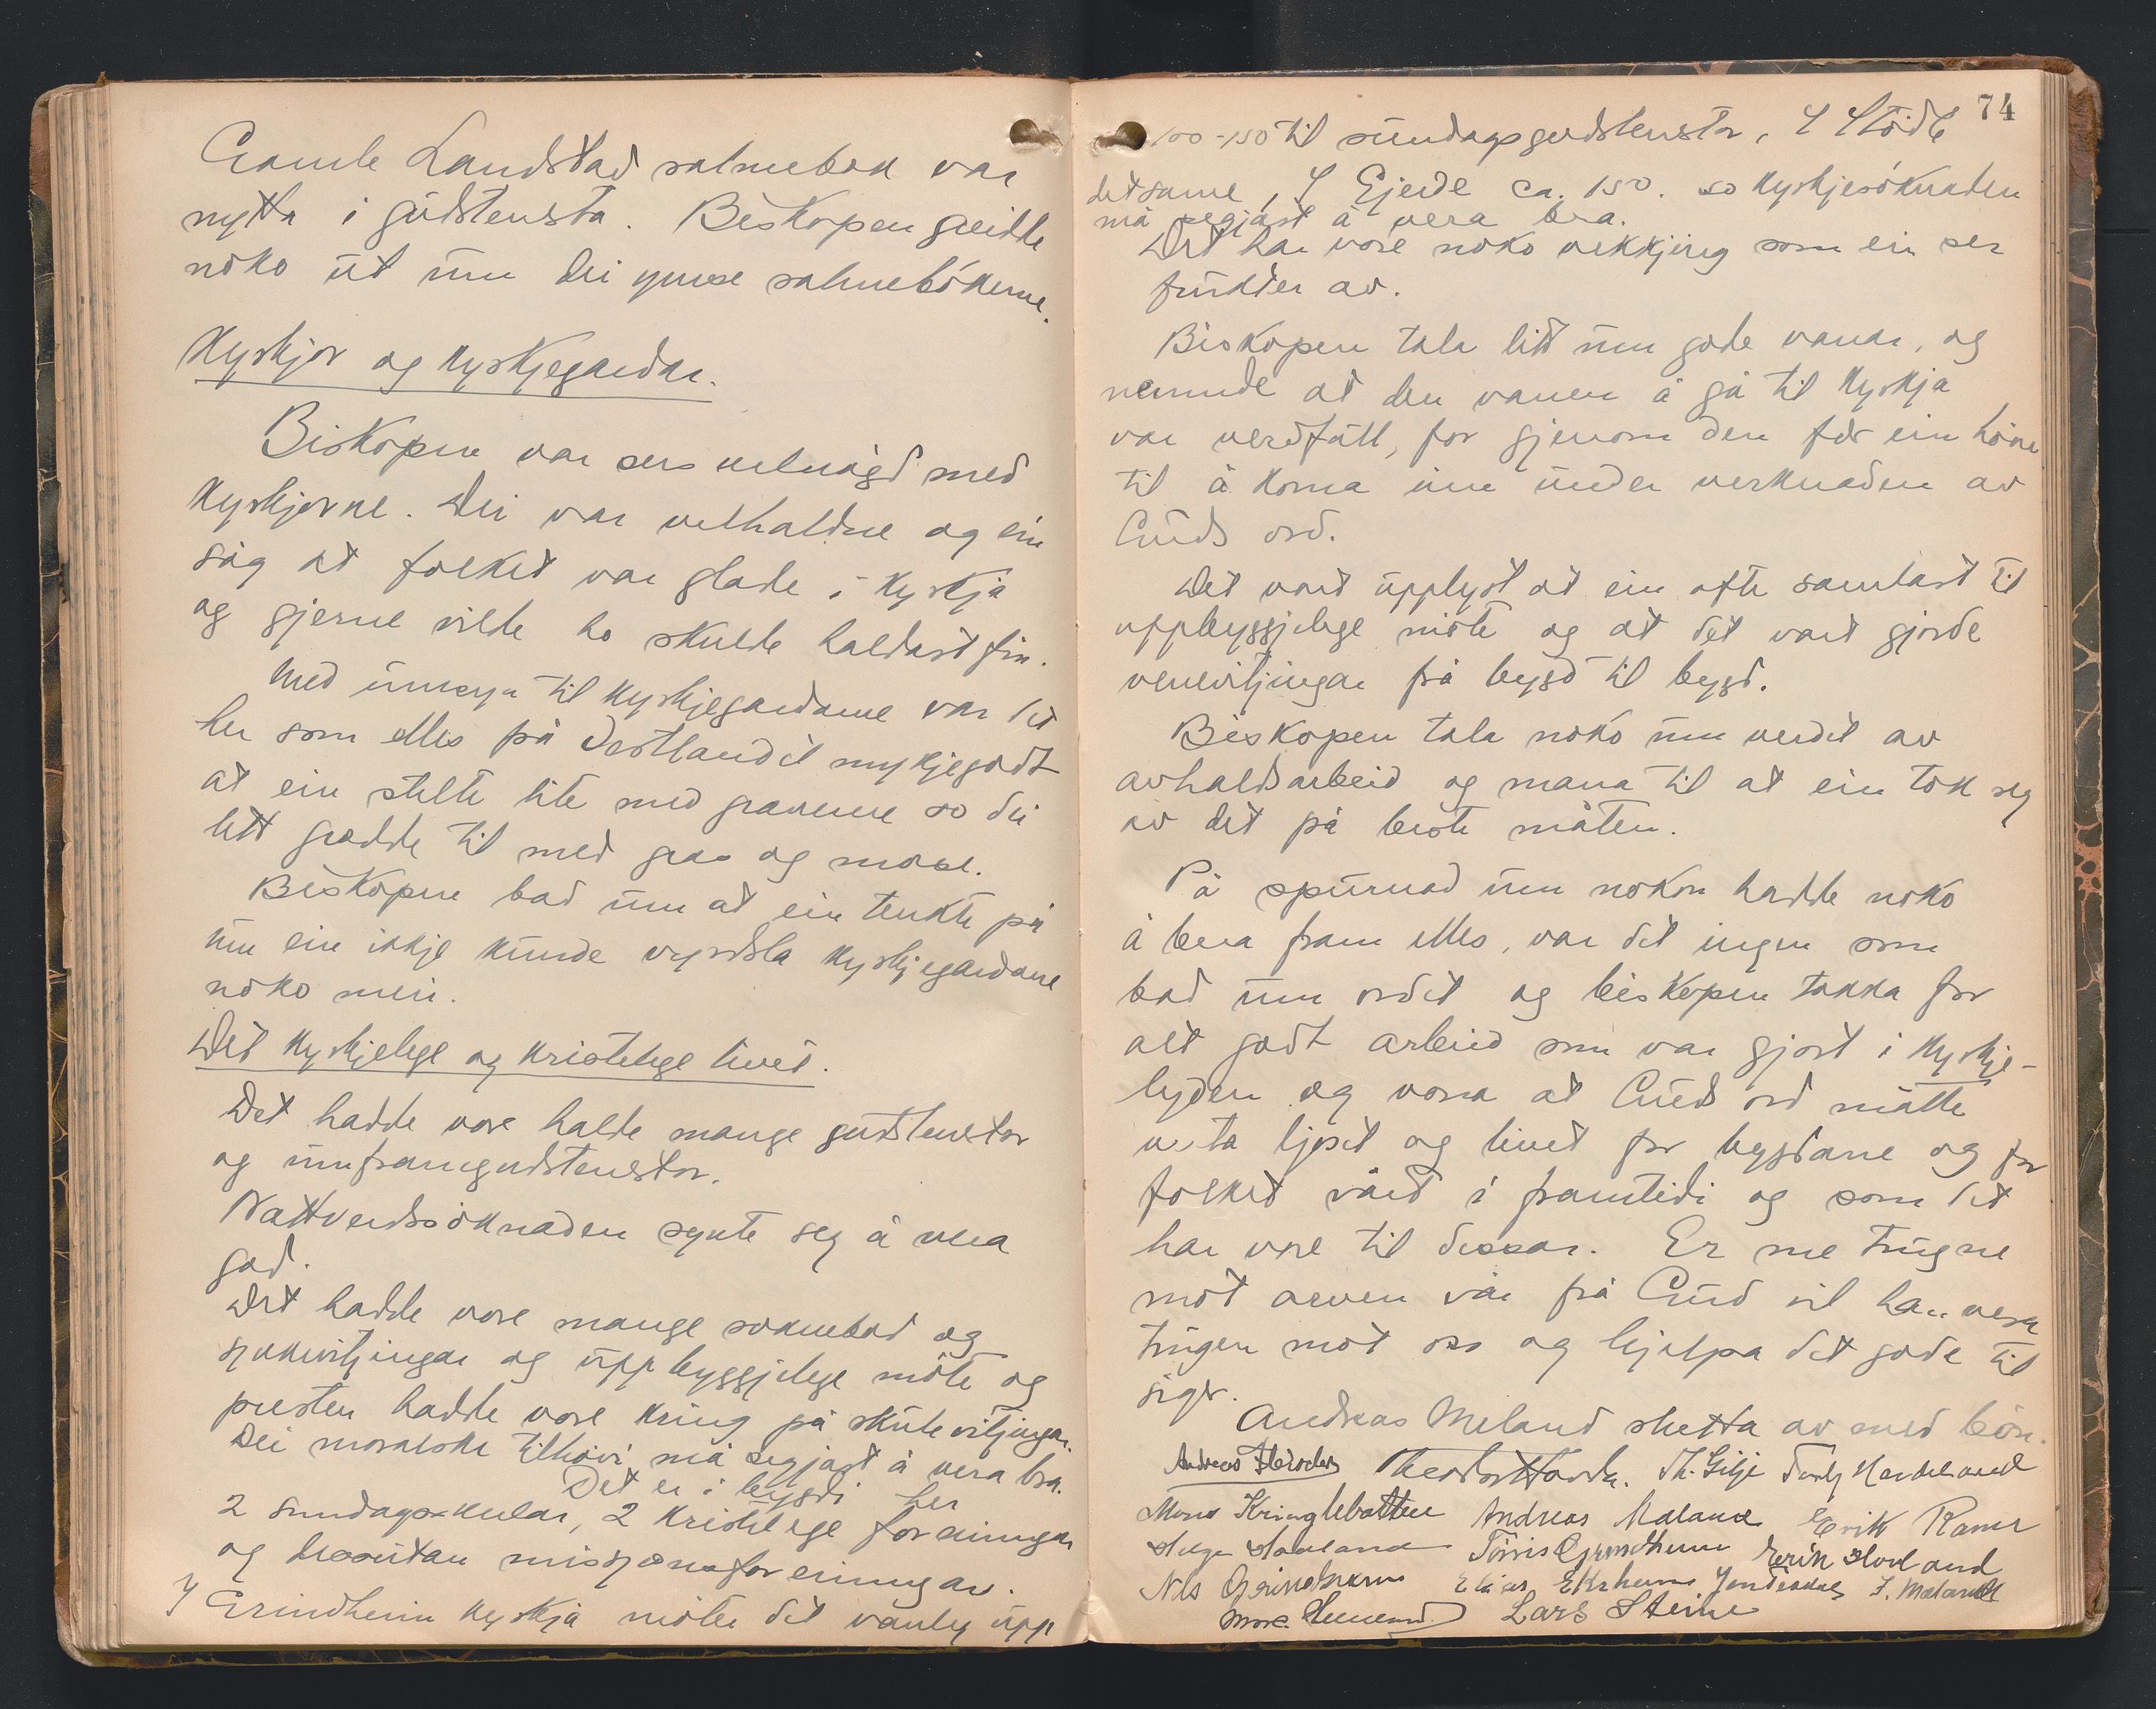 Gamle Landstad salmebok var
nytta i gudstensta. Biskopen greidde
noko ut um dei ymse salmebökerne.
Kyrkjor og kyrkjegardar.
Biskopen var sers velnögd med
kyrkjorne. Dei var velhaldne og ein
såg at folket var glade i kyrkja
og gjerne vilde ho skulde haldast fin.
Med umsyn til kyrkjegardane var det
her som elles på Vestlandet mykje godt
at ein stelte lite med gravene so dei
lett grodde til med gras og mose.
Biskopen bad um at ein tenkte på
um ein ikkje kunde vyrdsla kyrkjegardane
noko meir.
Det kyrkjelege og kristelege livet.
Det hadde vore halde mange gudstenestor
og umframgudstenestor.
Nattverdsöknaden synte seg å vera
god.
Det hadde vore mange soknebod og
sjukevitjingar og uppbyggjelege möte og
presten hadde vore kring på skulevitjingar.
Dei moralske tilhövi må segjast å vera bra.
Det er i bygdi her
2 sundagsskular, 2 kristelege foreiningar
og dessutan misjonsforeiningar.
I Grindheim kyrkja möter det vanleg upp
74
100-150 til sundagsgudstenstor, I Stödle
det same, I Gjerde ca. 150. so kyrkjesöknaden
må segjast å vera bra.
Det har vore noko vekkjing som ein ser
frukter av.
Biskopen tala litt um gode vanar, og
nemnde at den vanen å gå til kyrkja
var verdfull, for gjenom den får ein höve
til å koma inn under verknaden av
Guds ord.
Det vart upplyst at ein ofte samlast til
uppbyggjelege möte og at det vart gjorde
venevitjingar frå bygd til bygd.
Biskopen tala noko um verdet av
avhaldsarbeid og mana til at ein tok seg
av det på beste måten.
På spurnad um nokon hadde noko
å bera fram elles, var det ingen som
bad um ordet og biskopen takka for
alt godt arbeid som var gjort i kyrkje-
lyden og vona at Guds ord måtte
verta ljoset og livet for bygdane og for
folket vårt i framtidi og som det
har vore til dessar. Er me trugne
mot arven vår frå Gud vil han vera
trugen mot oss og hjelpa det gode til
siger.
Andreas Meland sletta av med bön.
Andreas Fleischer Theodor Th. Gilje
Mons Kringlebotten Andreas Maland Erik Ramr
Helge Haaland Törris Grindheim Erik Hovland
Nils Grindheim Elias Ekrheim J. Malande
Mons Lars Steine